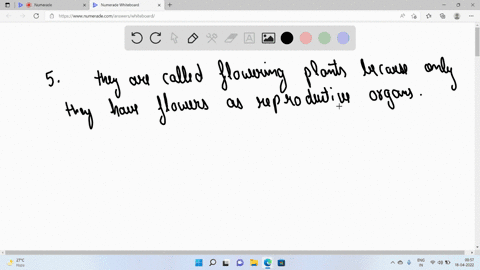 Numerade
Numerade Whiteboard
https://www.numerade.com/answers/whiteboard/
5. they are called flowering plants because only
they have flowers as reproductive organs.
27°C
Haze
ENG
IN
18-04-2022